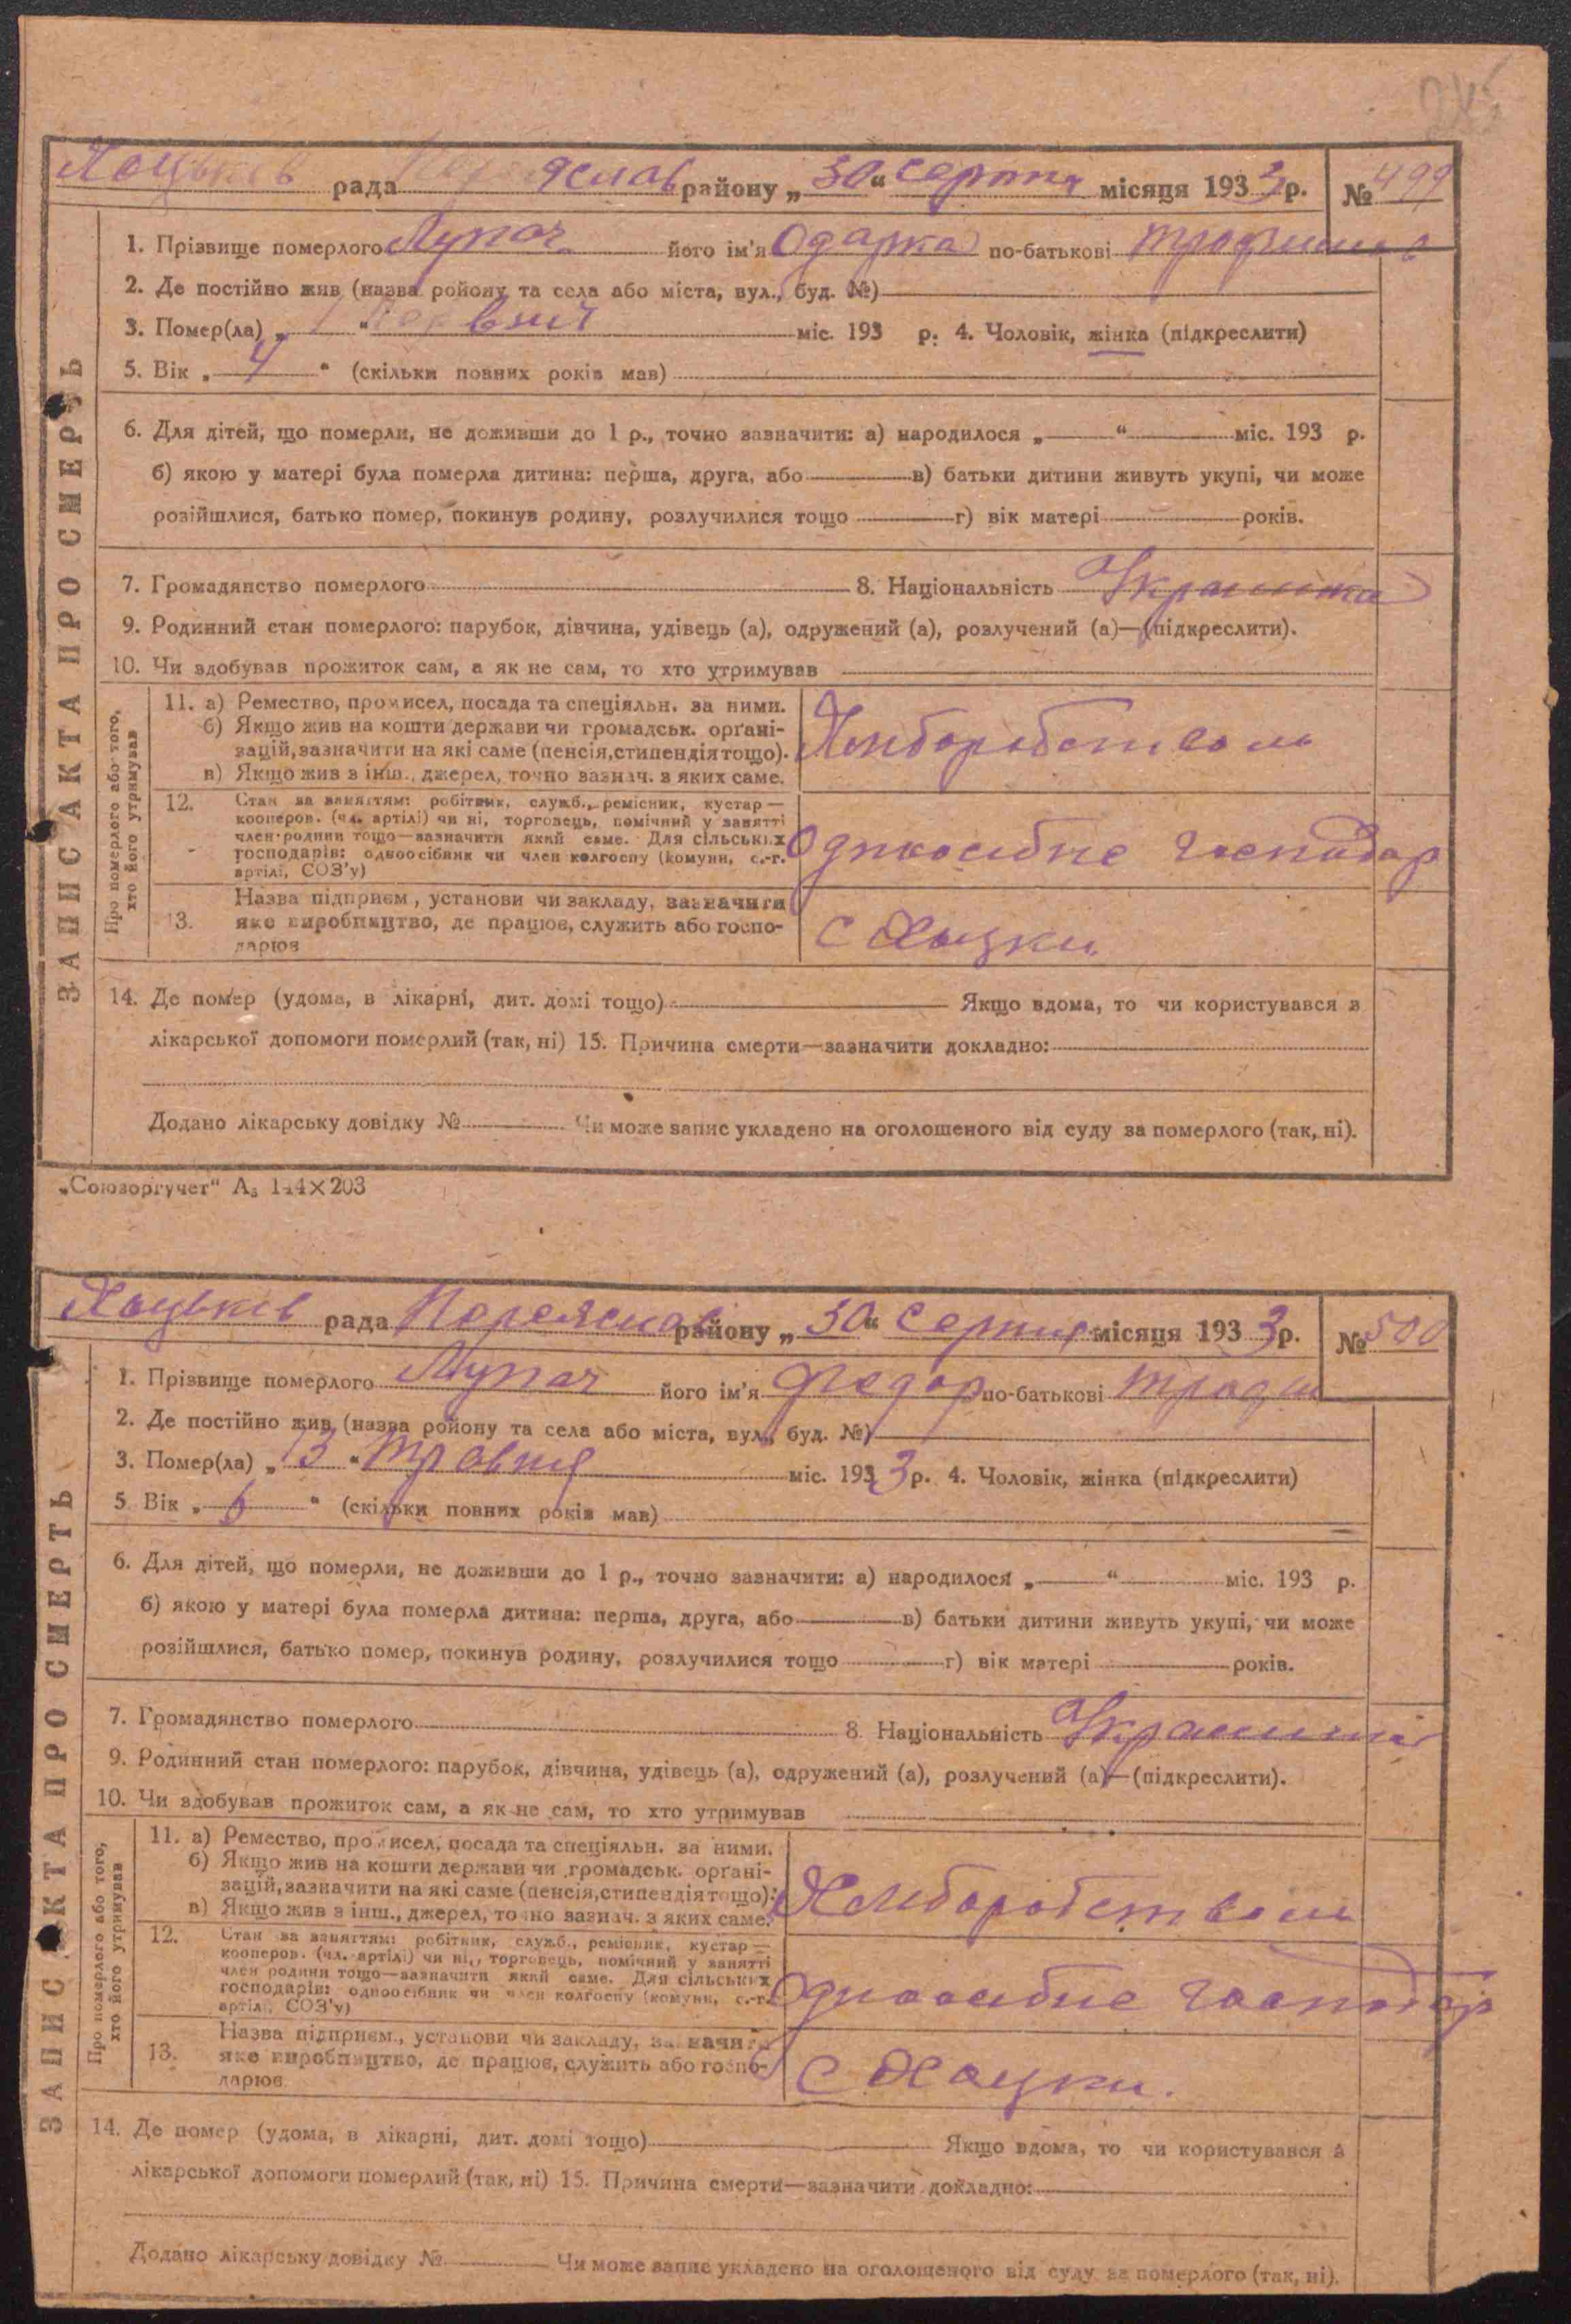 Хоцьків рада Переяслав району „30“ Серпня місяця 1933 р. № 499
1. Прізвище померлого Лупач його ім'я Одарка по-батькові Трофимів
2. Де постійно жив (назва ройону та села або міста, вул., буд. №)
3. Помер(ла) „ “ міс. 193 р. 4. Чоловік, жінка (підкреслити)
5. Вік „4“ (скільки повних років мав)
6. Для дітей, що померли, не доживши до 1 р., точно зазначити: а) народилося „ “ міс. 193 р.
б) якою у матері була померла дитина: перша, друга, або в) батьки дитини живуть укупі, чи може
розійшлися, батько помер, покинув родину, розлучилися тощо г) вік матері років.
7. Громадянство померлого 8. Національність Украинка
9. Родинний стан померлого: парубок, дівчина, удівець (а), одружений (а), розлучений (а)—(підкреслити).
10. Чи здобував прожиток сам, а як не сам, то хто утримував
ЗАПИС АКТА ПРО СМЕРТЬ
Про померлого або того, хто його утримував
11. а) Ремество, промисел, посада та спеціяльн. за ними.
б) Якщо жив на кошти держави чи громадськ. орґані-
зацій, зазначити на які саме (пенсія, стипендія тощо).
в) Якщо жив з інш., джерел, точно зазнач. з яких саме.
Хлиборобством
12. Стан за заняттям: робітник, служб., ремісник, кустар—
кооперов. (чл. артілі) чи ні, торговець, помічний у занятті
член родини тощо—зазначити який саме. Для сільських
господарів: одноосібник чи член колгоспу (комуни, с.-г.
артілі, СОЗ'у)
Одноособне господар
13. Назва підприєм., установи чи закладу, зазначити
яке виробництво, де працює, служить або госпо-
дарює
с Хоцки
14. Де помер (удома, в лікарні, дит. домі тощо) Якщо вдома, то чи користувався з
лікарської допомоги померлий (так, ні) 15. Причина смерти—зазначити докладно:
Додано лікарську довідку № Чи може запис укладено на оголошеного від суду за померлого (так, ні).
„Союзоргучет“ А₅ 144×203
Хоцьків рада Переяслав району „30“ Серпня місяця 1933 р. № 500
1. Прізвище померлого Лупач його ім'я Федор по-батькові
2. Де постійно жив (назва ройону та села або міста, вул., буд. №)
3. Помер(ла) „13“ Травня міс. 1933 р. 4. Чоловік, жінка (підкреслити)
5. Вік „6“ (скільки повних років мав)
6. Для дітей, що померли, не доживши до 1 р., точно зазначити: а) народилося „ “ міс. 193 р.
б) якою у матері була померла дитина: перша, друга, або в) батьки дитини живуть укупі, чи може
розійшлися, батько помер, покинув родину, розлучилися тощо г) вік матері років.
7. Громадянство померлого 8. Національність
9. Родинний стан померлого: парубок, дівчина, удівець (а), одружений (а), розлучений (а)—(підкреслити).
10. Чи здобував прожиток сам, а як не сам, то хто утримував
ЗАПИС АКТА ПРО СМЕРТЬ
Про померлого або того, хто його утримував
11. а) Ремество, промисел, посада та спеціяльн. за ними.
б) Якщо жив на кошти держави чи громадськ. орґані-
зацій, зазначити на які саме (пенсія, стипендія тощо).
в) Якщо жив з інш., джерел, точно зазнач. з яких саме.
Хлиборобством
12. Стан за заняттям: робітник, служб., ремісник, кустар—
кооперов. (чл. артілі) чи ні, торговець, помічний у занятті
член родини тощо—зазначити який саме. Для сільських
господарів: одноосібник чи член колгоспу (комуни, с.-г.
артілі, СОЗ'у)
Одноособне господар
13. Назва підприєм., установи чи закладу, зазначити
яке виробництво, де працює, служить або госпо-
дарює
с Хоцки.
14. Де помер (удома, в лікарні, дит. домі тощо) Якщо вдома, то чи користувався з
лікарської допомоги померлий (так, ні) 15. Причина смерти—зазначити докладно:
Додано лікарську довідку № Чи може запис укладено на оголошеного від суду за померлого (так, ні).